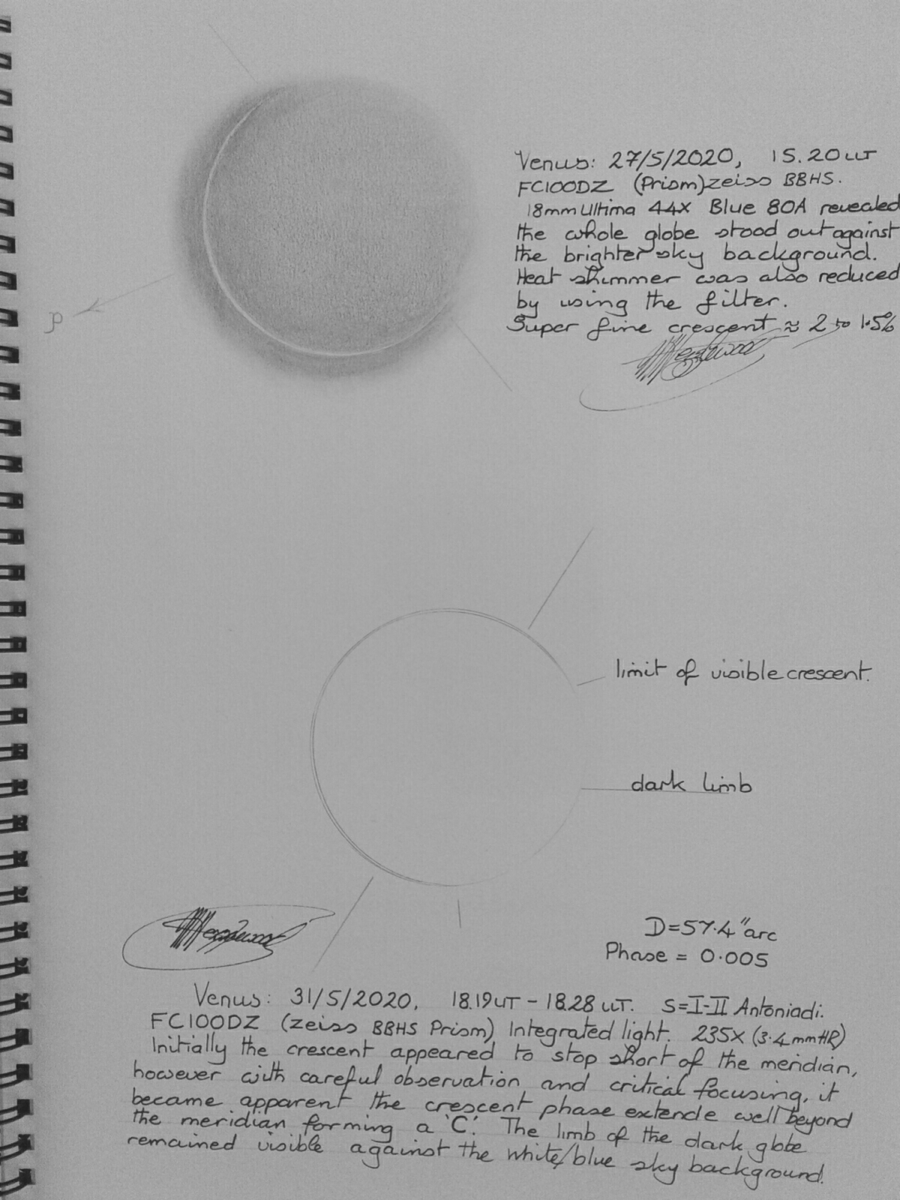 Venus: 27/5/2020, 15.20UT
FC100DZ (Prism) Zeiss BBHS.
18mm Ultima 44X Blue 80A revealed
the whole globe stood out against
the brighter sky background.
Heat shimmer was also reduced
by using the filter.
Super fine crescent ≈ 2 to 1.5%
p
limit of visible crescent.
dark limb
D=57.4"arc
Phase = 0.005
Venus: 31/5/2020, 18.19UT - 18.28 UT. S=I-II Antoniadi.
FC100DZ (Zeiss BBHS Prism) Integrated light. 235X (3.4mmHR)
Initially the crescent appeared to stop short of the meridian,
however with careful observation and critical focusing, it
became apparent the crescent phase extende well beyond
the meridian forming a 'C'. The limb of the dark globe
remained visible against the white/blue sky background.